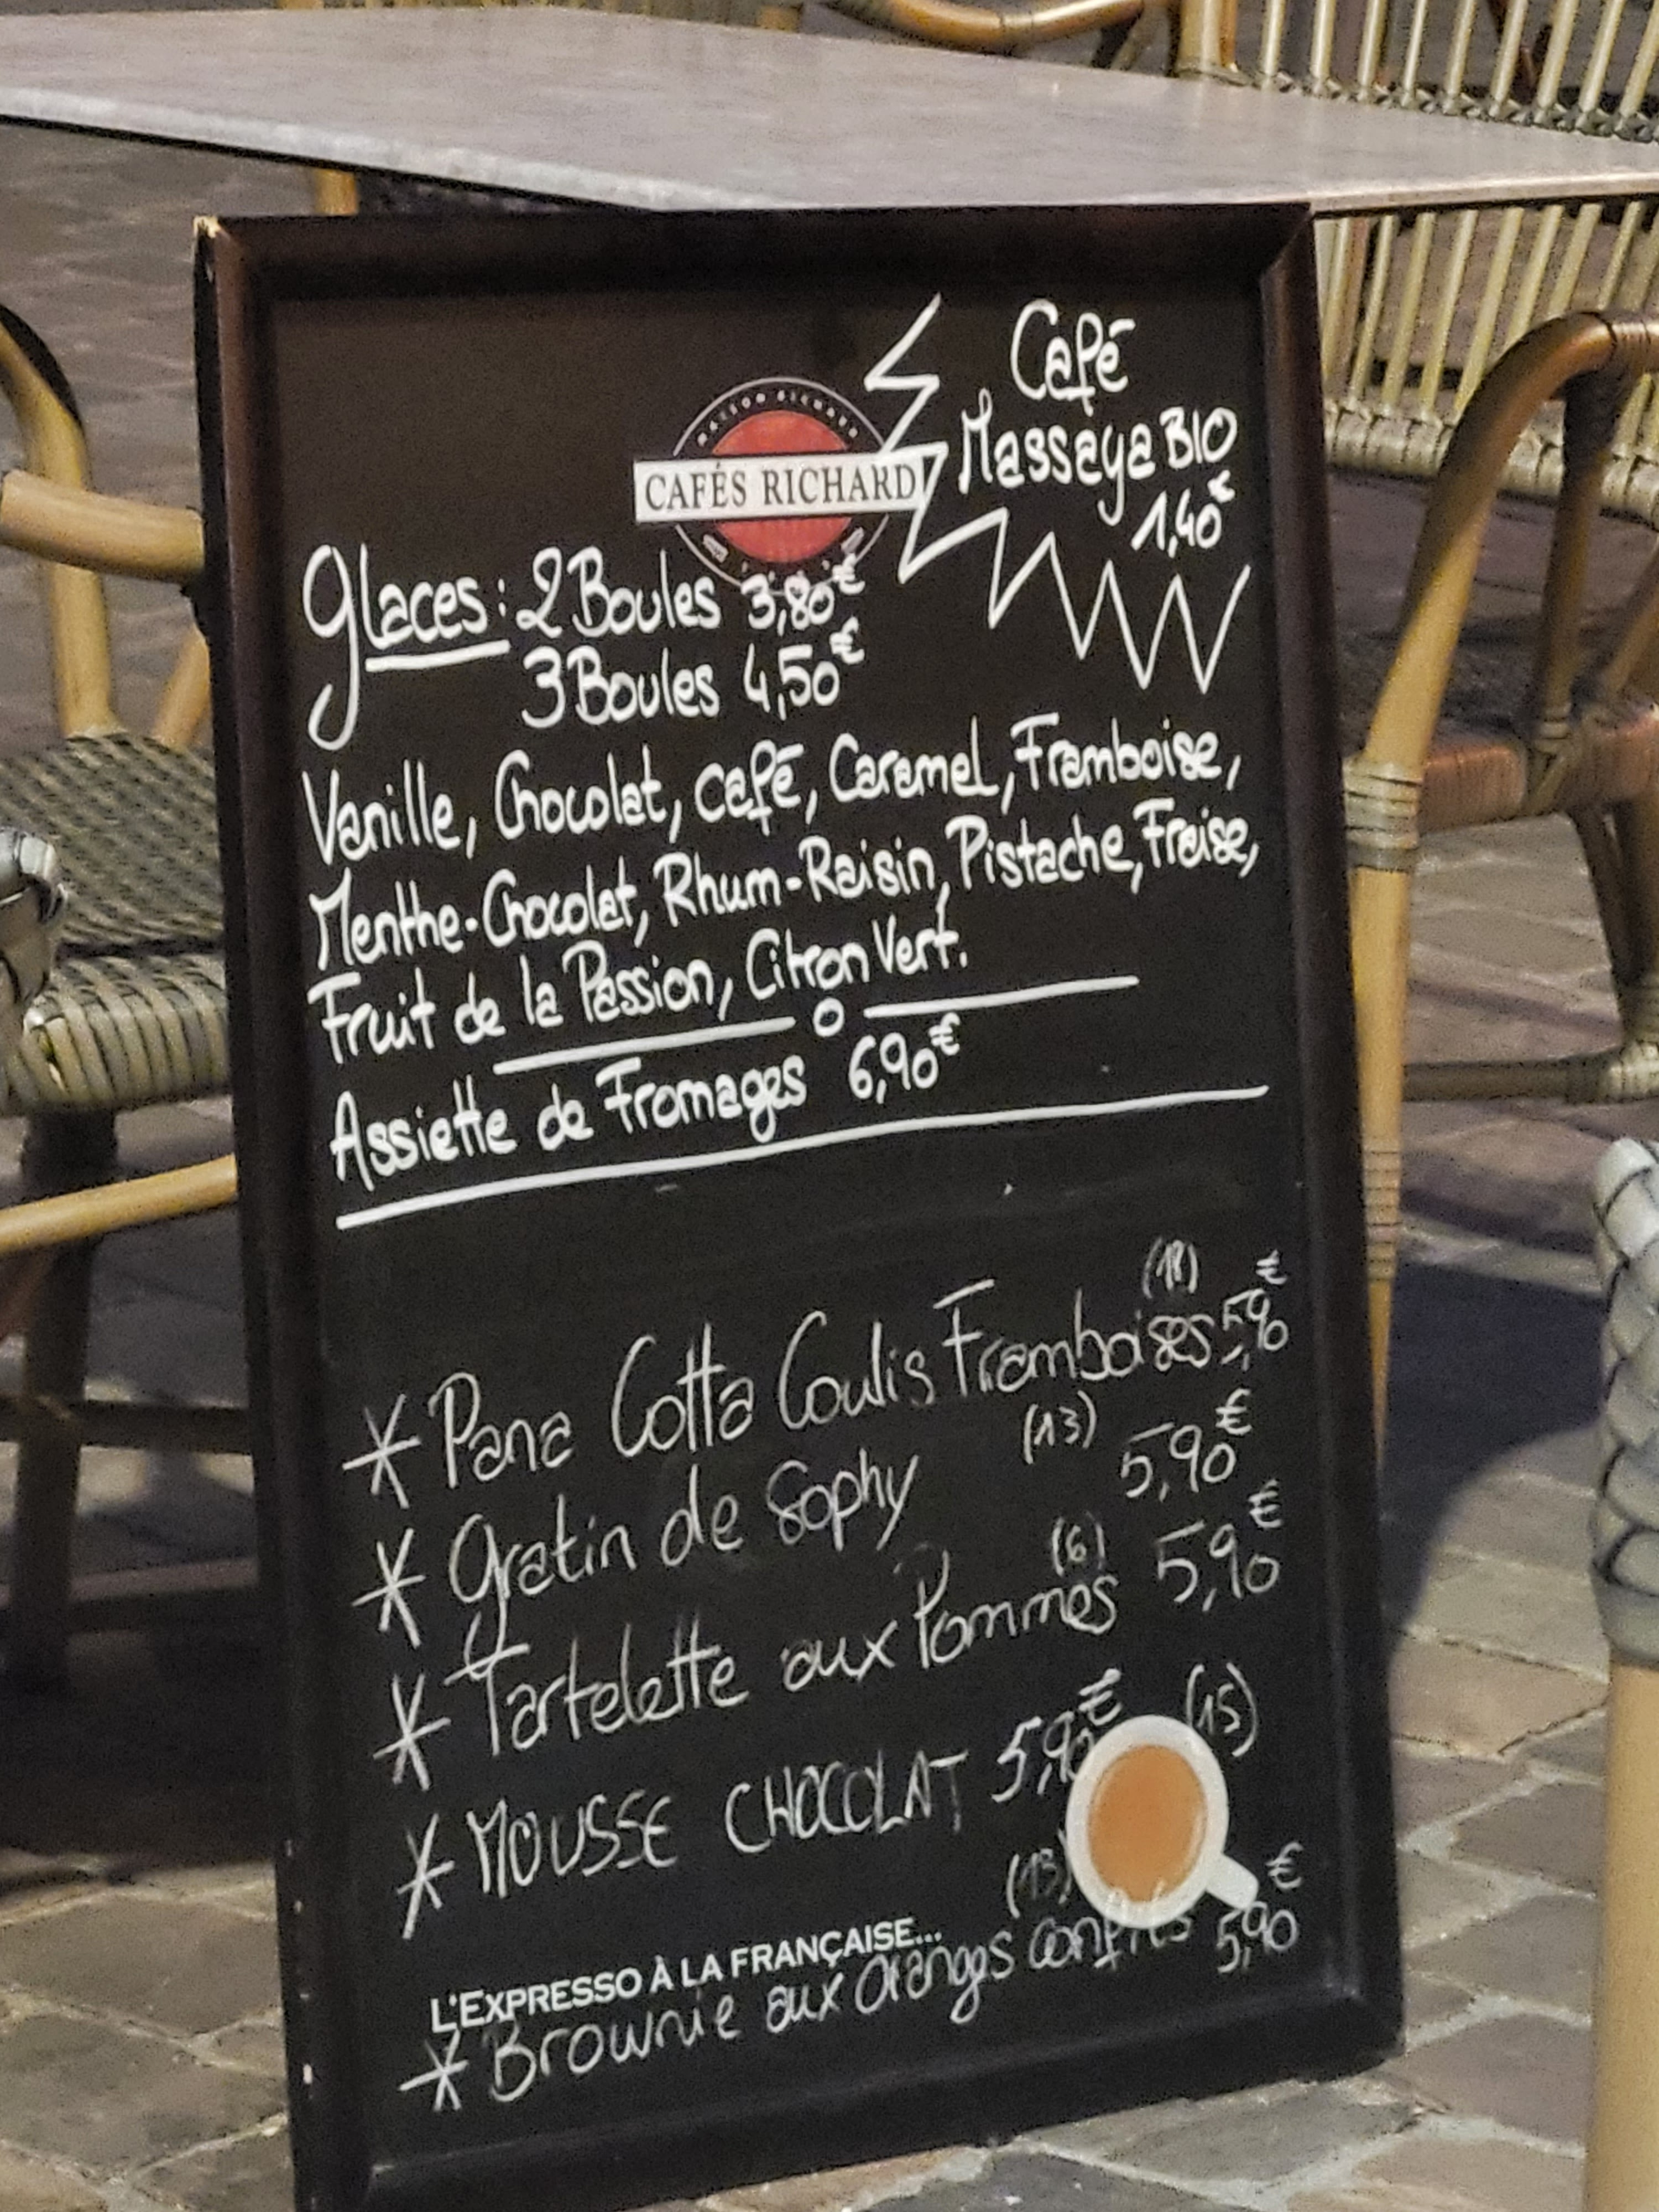 Café
Massaya BIO
1,40€
MAISON RICHARD
CAFÉS RICHARD
Glaces : 2 Boules 3,80€
3 Boules 4,50€
Vanille, Chocolat, café, Caramel, Framboise,
Menthe-Chocolat, Rhum-Raisin, Pistache, Fraise,
Fruit de la Passion, Citron Vert.
Assiette de Fromages 6,90€
(18)
* Pana Cotta Coulis Framboises 5,90€
(13)
* Gratin de Sophy 5,90€
(6)
* Tartelette aux Pommes 5,90€
* MOUSSE CHOCOLAT 5,90€ (15)
(13)
L'EXPRESSO À LA FRANÇAISE...
* Brownie aux oranges confites 5,90€